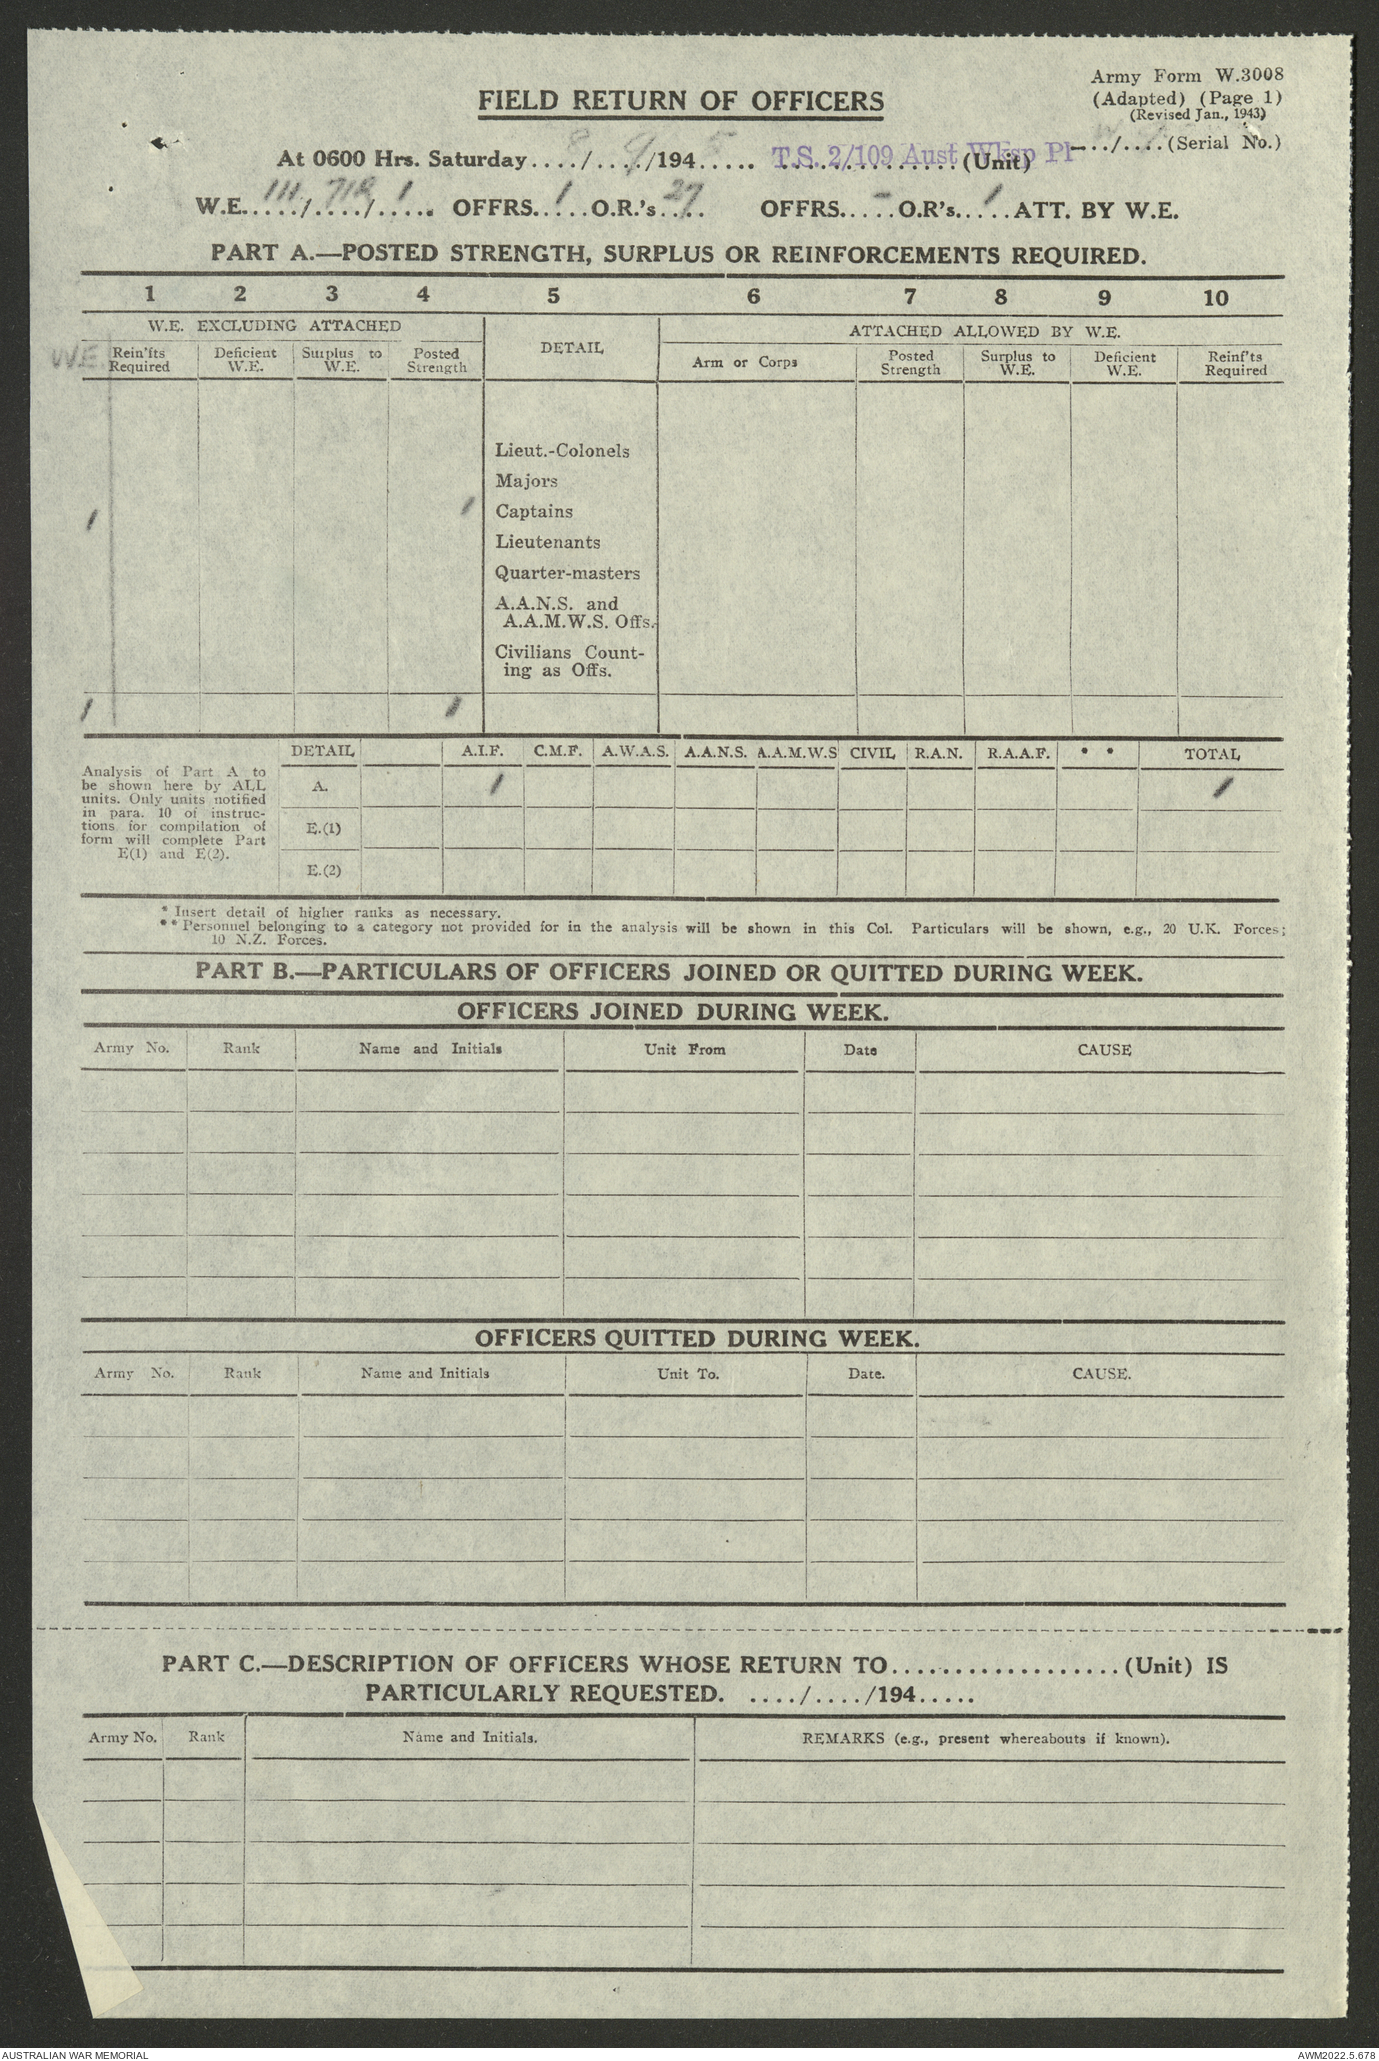 Army Form W.3008
FIELD RETURN OF OFFICERS
(Adapted) (Page 1)
(Revised Jan., 1943)
At 0600 Hrs. Saturday....8/....9/194..5... T.S. 2/109 Aust Wksp Pl (Unit) ..../....(Serial No.)
W.E. 111/718/1 OFFRS. 1 O.R.'s 27 OFFRS. - O.R's. 1 ATT. BY W.E.
PART A.—POSTED STRENGTH, SURPLUS OR REINFORCEMENTS REQUIRED.
1 2 3 4 5 6 7 8 9 10
W.E. EXCLUDING ATTACHED DETAIL ATTACHED ALLOWED BY W.E.
W.E. Rein'fts Required Deficient W.E. Surplus to W.E. Posted Strength Arm or Corps Posted Strength Surplus to W.E. Deficient W.E. Reinf'ts Required
Lieut.-Colonels
Majors
1 1 Captains
Lieutenants
Quarter-masters
A.A.N.S. and
A.A.M.W.S. Offs.
Civilians Count-
ing as Offs.
1 1
DETAIL A.I.F. C.M.F. A.W.A.S. A.A.N.S. A.A.M.W.S CIVIL R.A.N. R.A.A.F. * * TOTAL
Analysis of Part A to
be shown here by ALL
units. Only units notified
in para. 10 of instruc-
tions for compilation of
form will complete Part
E(1) and E(2).
A. 1 1
E.(1)
E.(2)
* Insert detail of higher ranks as necessary.
** Personnel belonging to a category not provided for in the analysis will be shown in this Col. Particulars will be shown, e.g., 20 U.K. Forces;
10 N.Z. Forces.
PART B.—PARTICULARS OF OFFICERS JOINED OR QUITTED DURING WEEK.
OFFICERS JOINED DURING WEEK.
Army No. Rank Name and Initials Unit From Date CAUSE
OFFICERS QUITTED DURING WEEK.
Army No. Rank Name and Initials Unit To. Date. CAUSE.
PART C.—DESCRIPTION OF OFFICERS WHOSE RETURN TO...................(Unit) IS
PARTICULARLY REQUESTED. ..../..../194.....
Army No. Rank Name and Initials. REMARKS (e.g., present whereabouts if known).
AUSTRALIAN WAR MEMORIAL AWM2022.5.678